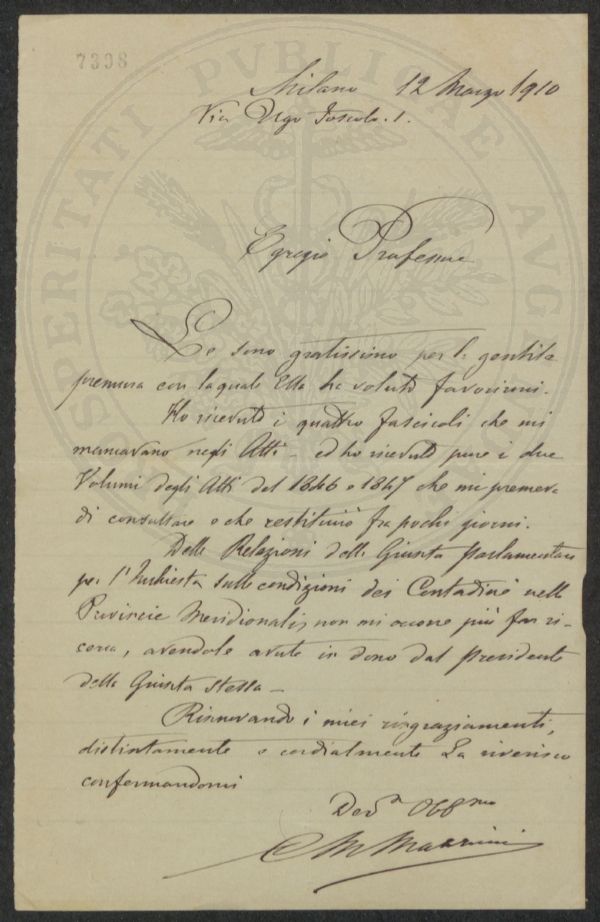 7398
Milano 12 Marzo 1910
Via Ugo Foscolo. 1.
Egregio Professore
Le sono gratissimo per la gentile
premura con la quale Ella ha voluto favorirmi.
Ho ricevuto i quattro fascicoli che mi
mancavano negli Atti - ed ho ricevuto pure i due
Volumi degli Atti del 1846 e 1847 che mi premeva
di consultare e che restituirò fra pochi giorni.
Delle Relazioni della Giunta parlamentare
per l'Inchiesta sulle condizioni dei Contadini nelle
Provincie Meridionali, non mi occorre più far ri-
cerca, avendole avute in dono dal presidente
della Giunta stessa -
Rinnovando i miei ringraziamenti,
distintamente e cordialmente La riverisco
confermandomi
Dev.º Obb.mo
PVBLICAE
SPERITATI
AVG